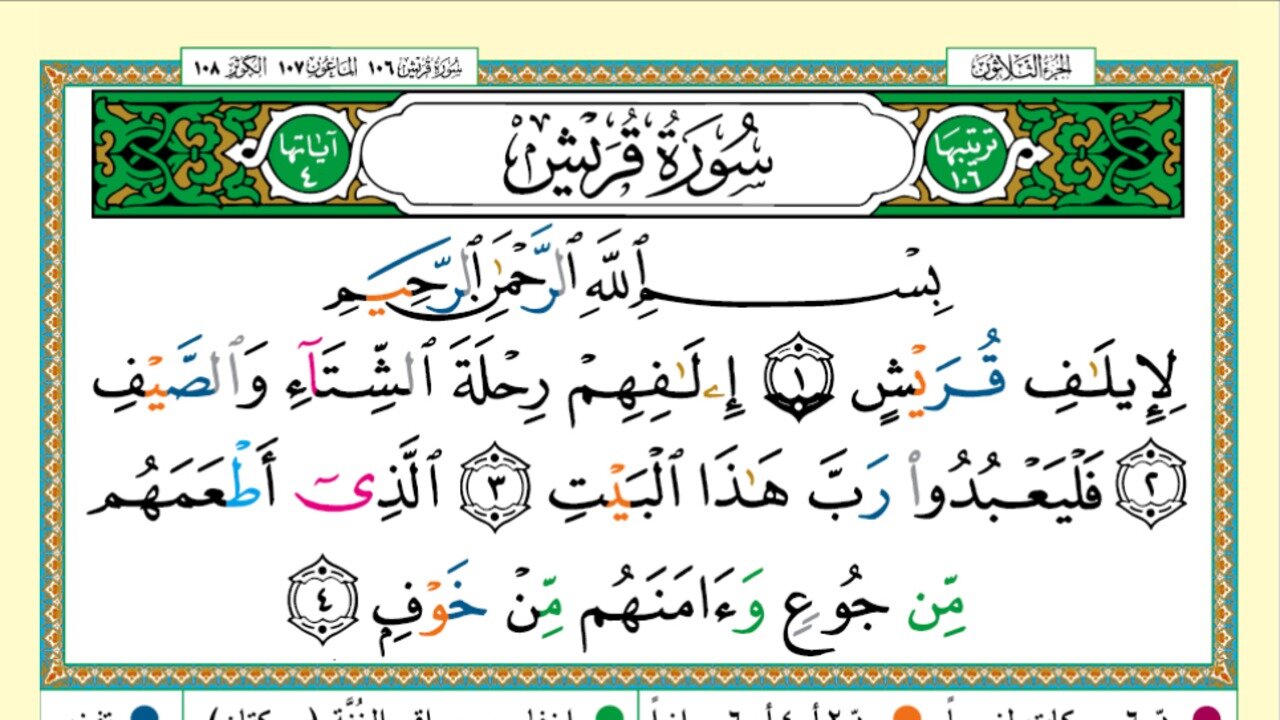 الجزء الثلاثون
سورة قريش ١٠٦ الماعون ١٠٧ الكوثر ١٠٨
ترتيبها ١٠٦
سُورَةُ قُرَيْشٍ
آياتها ٤
بِسْمِ ٱللَّهِ ٱلرَّحْمَٰنِ ٱلرَّحِيمِ
لِإِيلَٰفِ قُرَيْشٍ ١ إِۦلَٰفِهِمْ رِحْلَةَ ٱلشِّتَآءِ وَٱلصَّيْفِ
٢ فَلْيَعْبُدُوا۟ رَبَّ هَٰذَا ٱلْبَيْتِ ٣ ٱلَّذِىٓ أَطْعَمَهُم
مِّن جُوعٍ وَءَامَنَهُم مِّنْ خَوْفٍۭ ٤